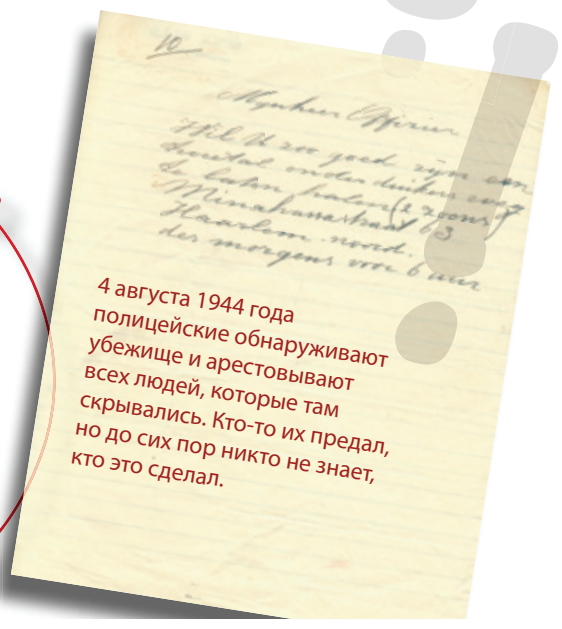 10
Mynheer Officier
Wil U zoo goed zijn een
tweetal onderduikers weg
te laten halen (2 zoons)
Minahassastraat 63
Haarlem noord.
des morgens voor 6 uur
4 августа 1944 года
полицейские обнаруживают
убежище и арестовывают
всех людей, которые там
скрывались. Кто-то их предал,
но до сих пор никто не знает,
кто это сделал.